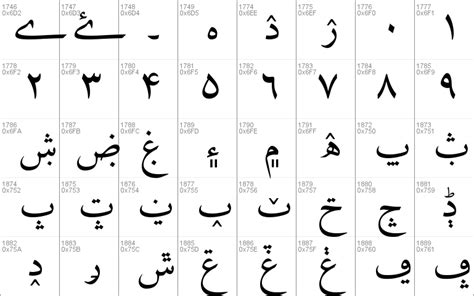 1746 1747 1748 1749 1774 1775 1776 1777
0x6D2 0x6D3 0x6D4 0x6D5 0x6EE 0x6EF 0x6F0 0x6F1
ے ۓ ۔ ە ۮ ۯ ۰ ۱
1778 1779 1780 1781 1782 1783 1784 1785
0x6F2 0x6F3 0x6F4 0x6F5 0x6F6 0x6F7 0x6F8 0x6F9
۲ ۳ ۴ ۵ ۶ ۷ ۸ ۹
1786 1787 1788 1789 1790 1791 1872 1873
0x6FA 0x6FB 0x6FC 0x6FD 0x6FE 0x6FF 0x750 0x751
ۺ ۻ ۼ ۽ ۾ ۿ ݐ ݑ
1874 1875 1876 1877 1878 1879 1880 1881
0x752 0x753 0x754 0x755 0x756 0x757 0x758 0x759
ݒ ݓ ݔ ݕ ݖ ݗ ݘ ݙ
1882 1883 1884 1885 1886 1887 1888 1889
0x75A 0x75B 0x75C 0x75D 0x75E 0x75F 0x760 0x761
ݚ ݛ ݜ ݝ ݞ ݟ ݠ ݡ